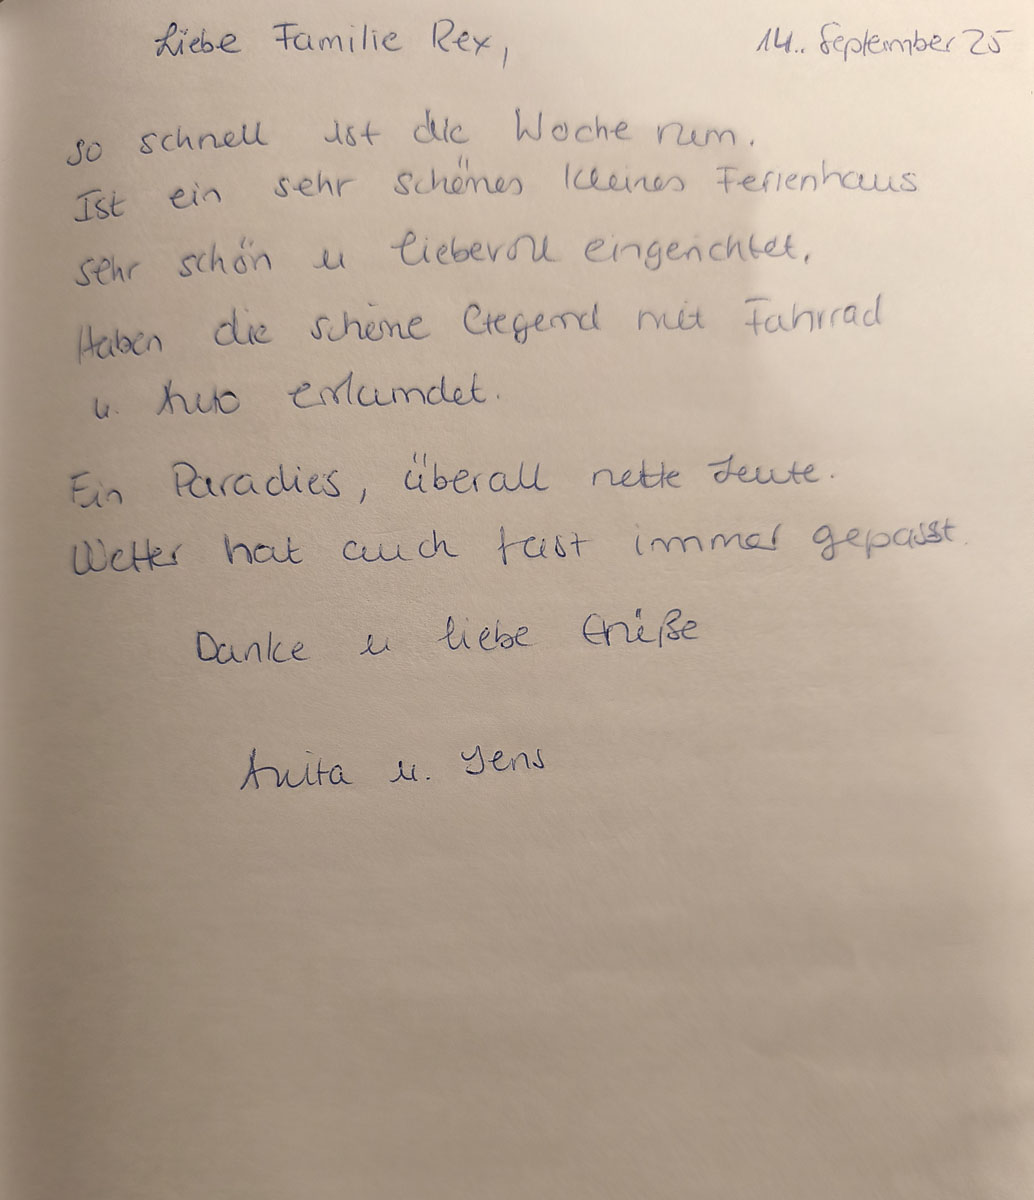 Liebe Familie Rex,
14. September 25
so schnell ist die Woche rum.
Ist ein sehr schönes kleines Ferienhaus
sehr schön u lieberoll eingerichtet.
Haben die schöne Gegend mit Fahrrad
u. Auto erkundet.
Ein Paradies, überall nette Leute.
Wetter hat auch fast immer gepasst.
Danke u liebe Grüße
Anita u. Jens